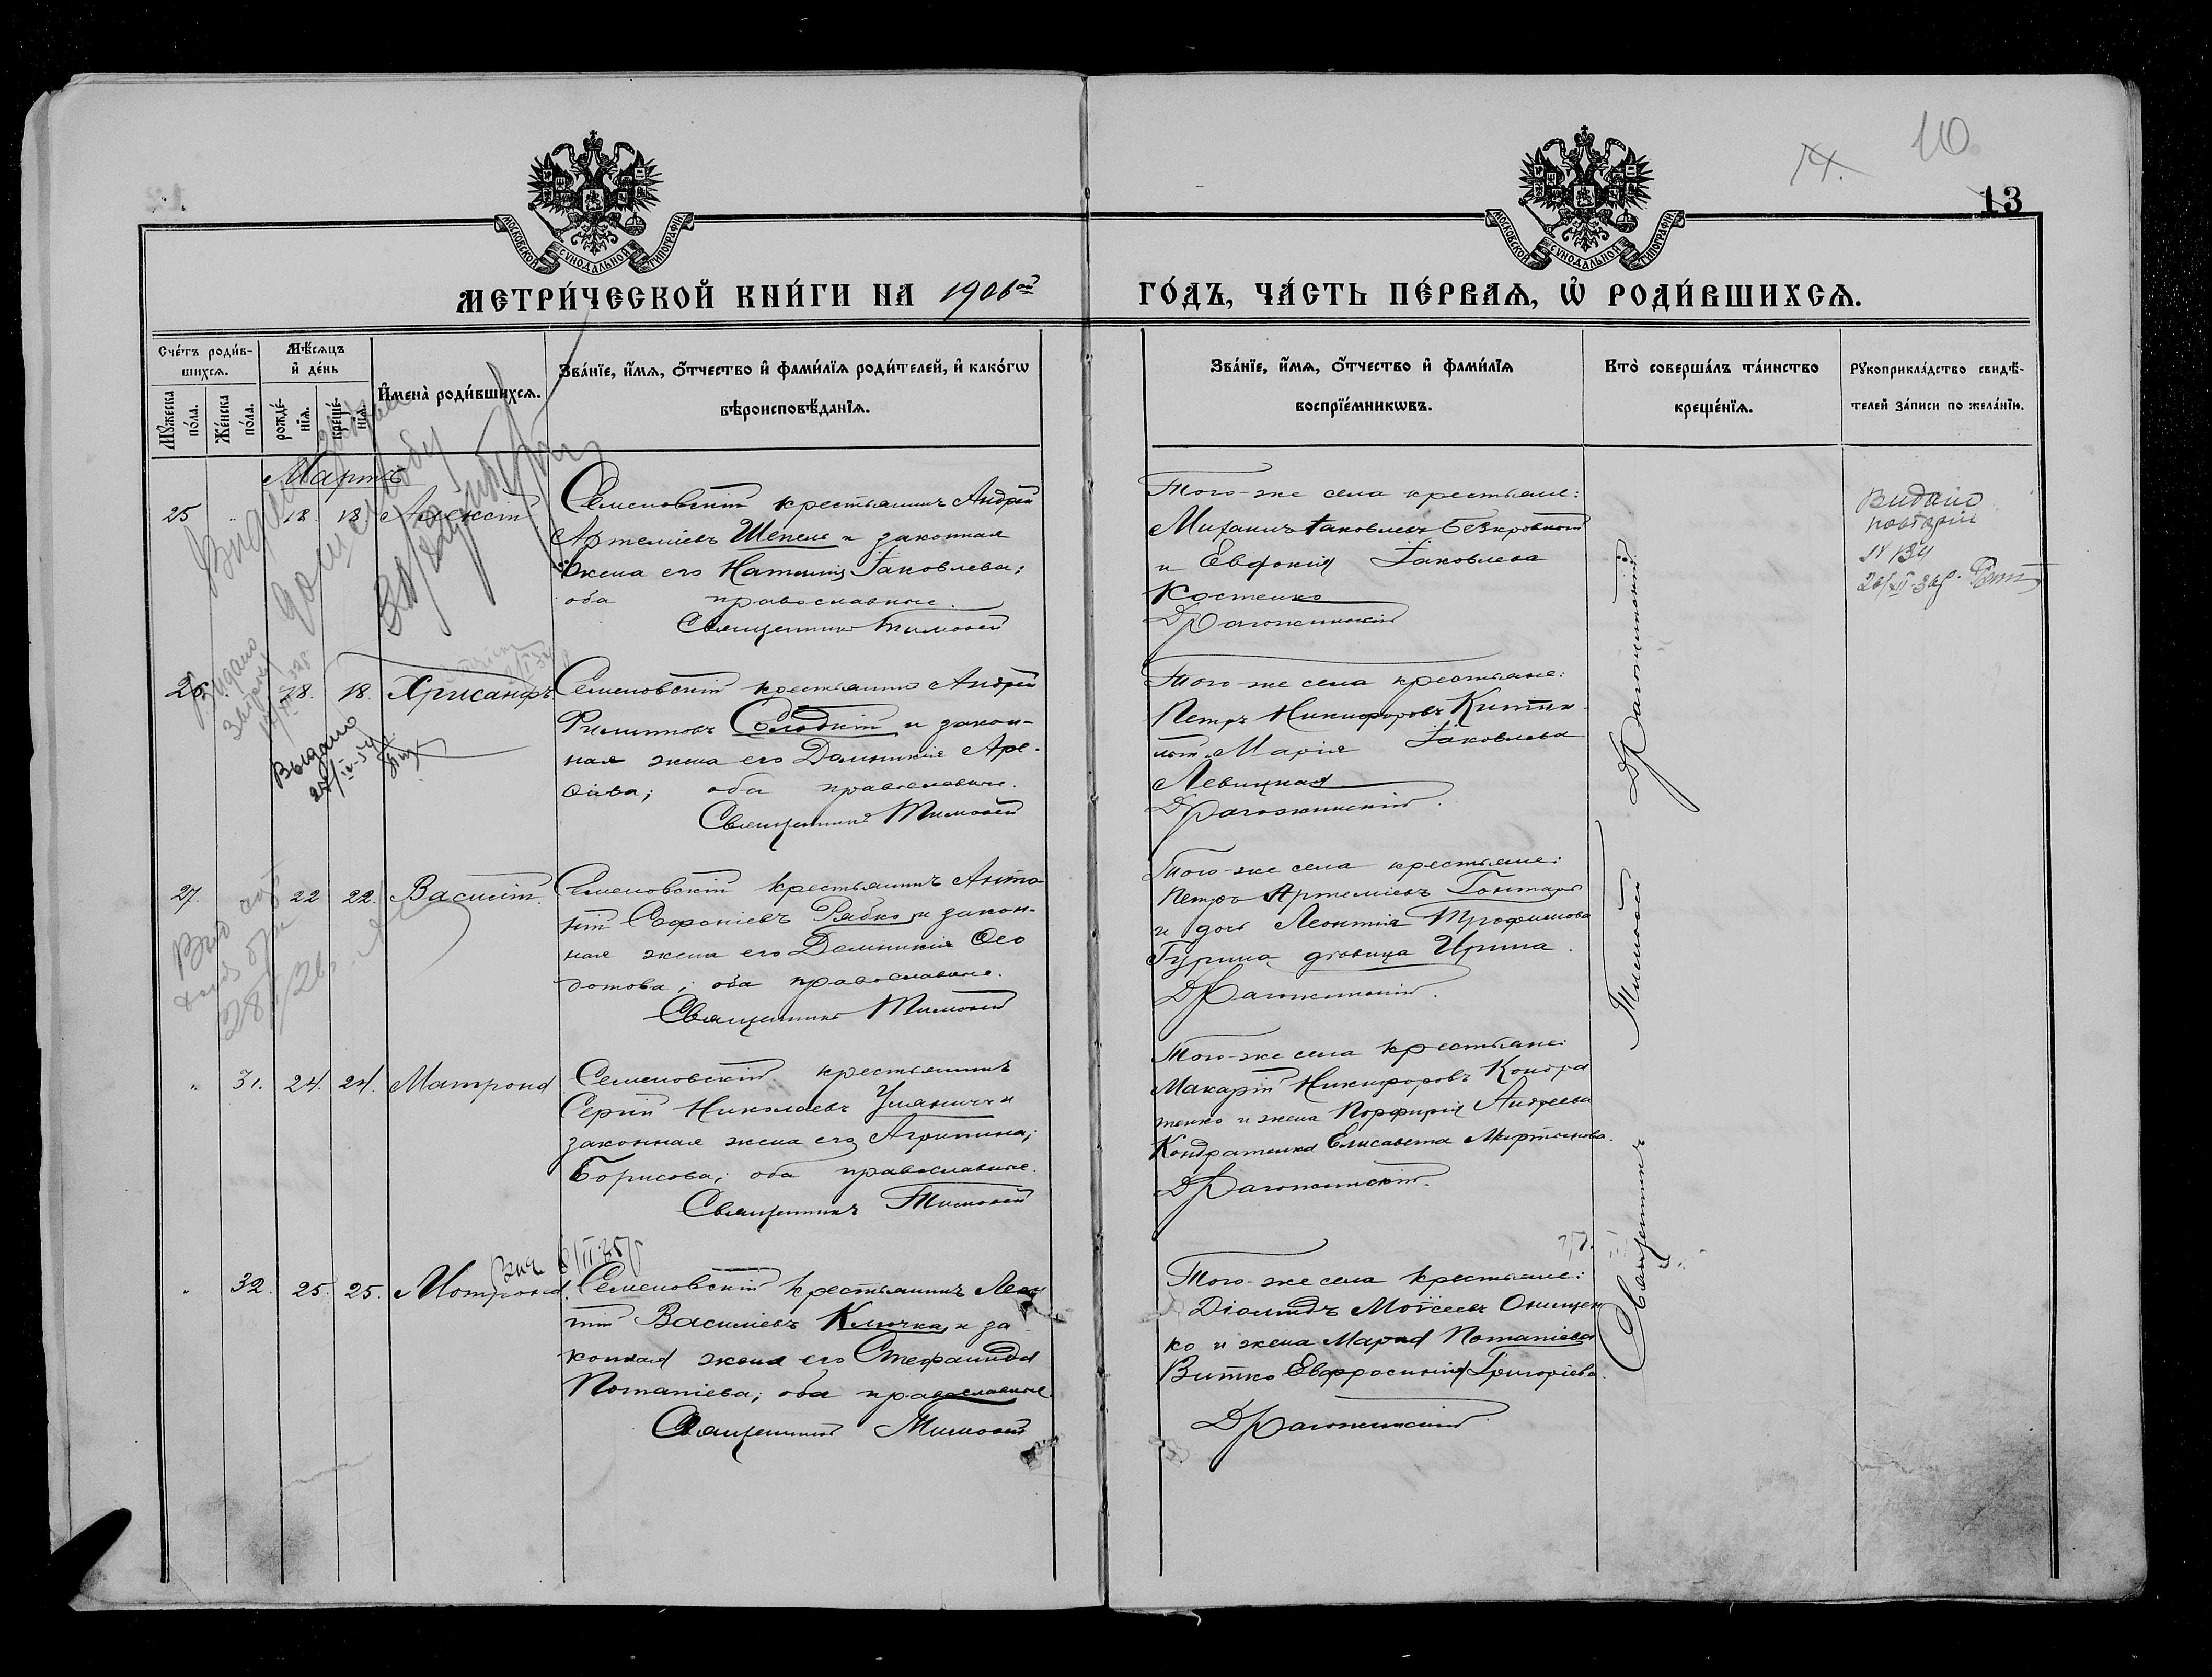 10
14.
13
МОСКОВСКОЙ СУНОДАЛЬНОЙ ТИПОГРАФІИ
МОСКОВСКОЙ СУНОДАЛЬНОЙ ТИПОГРАФІИ
МЕТРИ́ЧЕСКОЙ КНИ́ГИ НА 1906ой ГО́ДЪ, ЧА́СТЬ ПЕ́РВАѦ, Ѡ҆ РОДИ́ВШИХСѦ.
Сче́тъ роди́в-
шихсѧ.
Мꙋжеска по́ла.
Же́нска по́ла.
Мѣ́сѧцъ
и҆ де́нь
рожде́-
нїѧ.
креще́-
нїѧ.
И҆мена̀ роди́вшихсѧ.
Зва́нїе, и҆́мѧ, ѻ҆́тчество и҆ фами́лїѧ роди́телей, и҆ како́гѡ
вѣроисповѣ́данїѧ.
Зва́нїе, и҆́мѧ, ѻ҆́тчество и҆ фами́лїѧ
воспрїе́мникѡвъ.
Кто̀ соверша́лъ та́инство
креще́нїѧ.
Рꙋкоприкла́дство свидѣ́-
телей за́писи по жела́нїю.
Мартъ
25 " 18. 18. Алексій
Семеновскій крестьянинъ Андрей
Артеміевъ Шепель и законная
жена его Наталія Іаковлева;
оба православные.
Священникъ Тимоѳей
Того-же села крестьяне:
Михаилъ Іаковлевъ Безкровный
и Евфокія Іаковлева
Костенко
Драгожинскій
Видано
повторн
26. 18. 18. Хрисанфъ
Семеновскій крестьянинъ Андрей
Филиповъ Солодкій и закон-
ная жена его Домникія Аре-
оба православные.
Священникъ Тимоѳей
Того-же села крестьяне:
Петръ Никифоровъ
Марія Іаковлева
Левицкая
Драгожинскій.
Видано
Выдано
27. " 22 22. Василій.
Семеновскій крестьянинъ Анто-
ній Софоніевъ Рябко и закон-
ная жена его Домникія Ѳео
дотова; оба православные.
Священникъ Тимоѳей
Того-же села крестьяне:
Петръ Артеміевъ Гонтарь
и дочь Леонтія Трофимова
Гурина девица Ирина.
Драгожинскій.
" 31. 24. 24. Матрона
Семеновскій крестьянинъ
Сергій Николаевъ Уманич и
законная жена его Агрипина;
Борисова; оба православные.
Священникъ Тимоѳей
Того-же села крестьяне:
Макарій Никифоровъ Кондра
тенко и жена Порфирія Андреева
Кондратенка Елисавета Мартынова.
Драгожинскій.
" 32. 25. 25. Мотрона.
Семеновскій крестьянинъ Леон
тій Василіевъ Ключка и за
конная жена его Стефанида
Потапіева; оба православные.
Священникъ Тимоѳей
Того-же села крестьяне:
Діомидъ Моѵсеевъ Онищен
ко и жена Марка Потапіева
Витко Евфросинія Григоріева.
Драгожинскій
Священникъ Тимоѳей Драгожинскій.